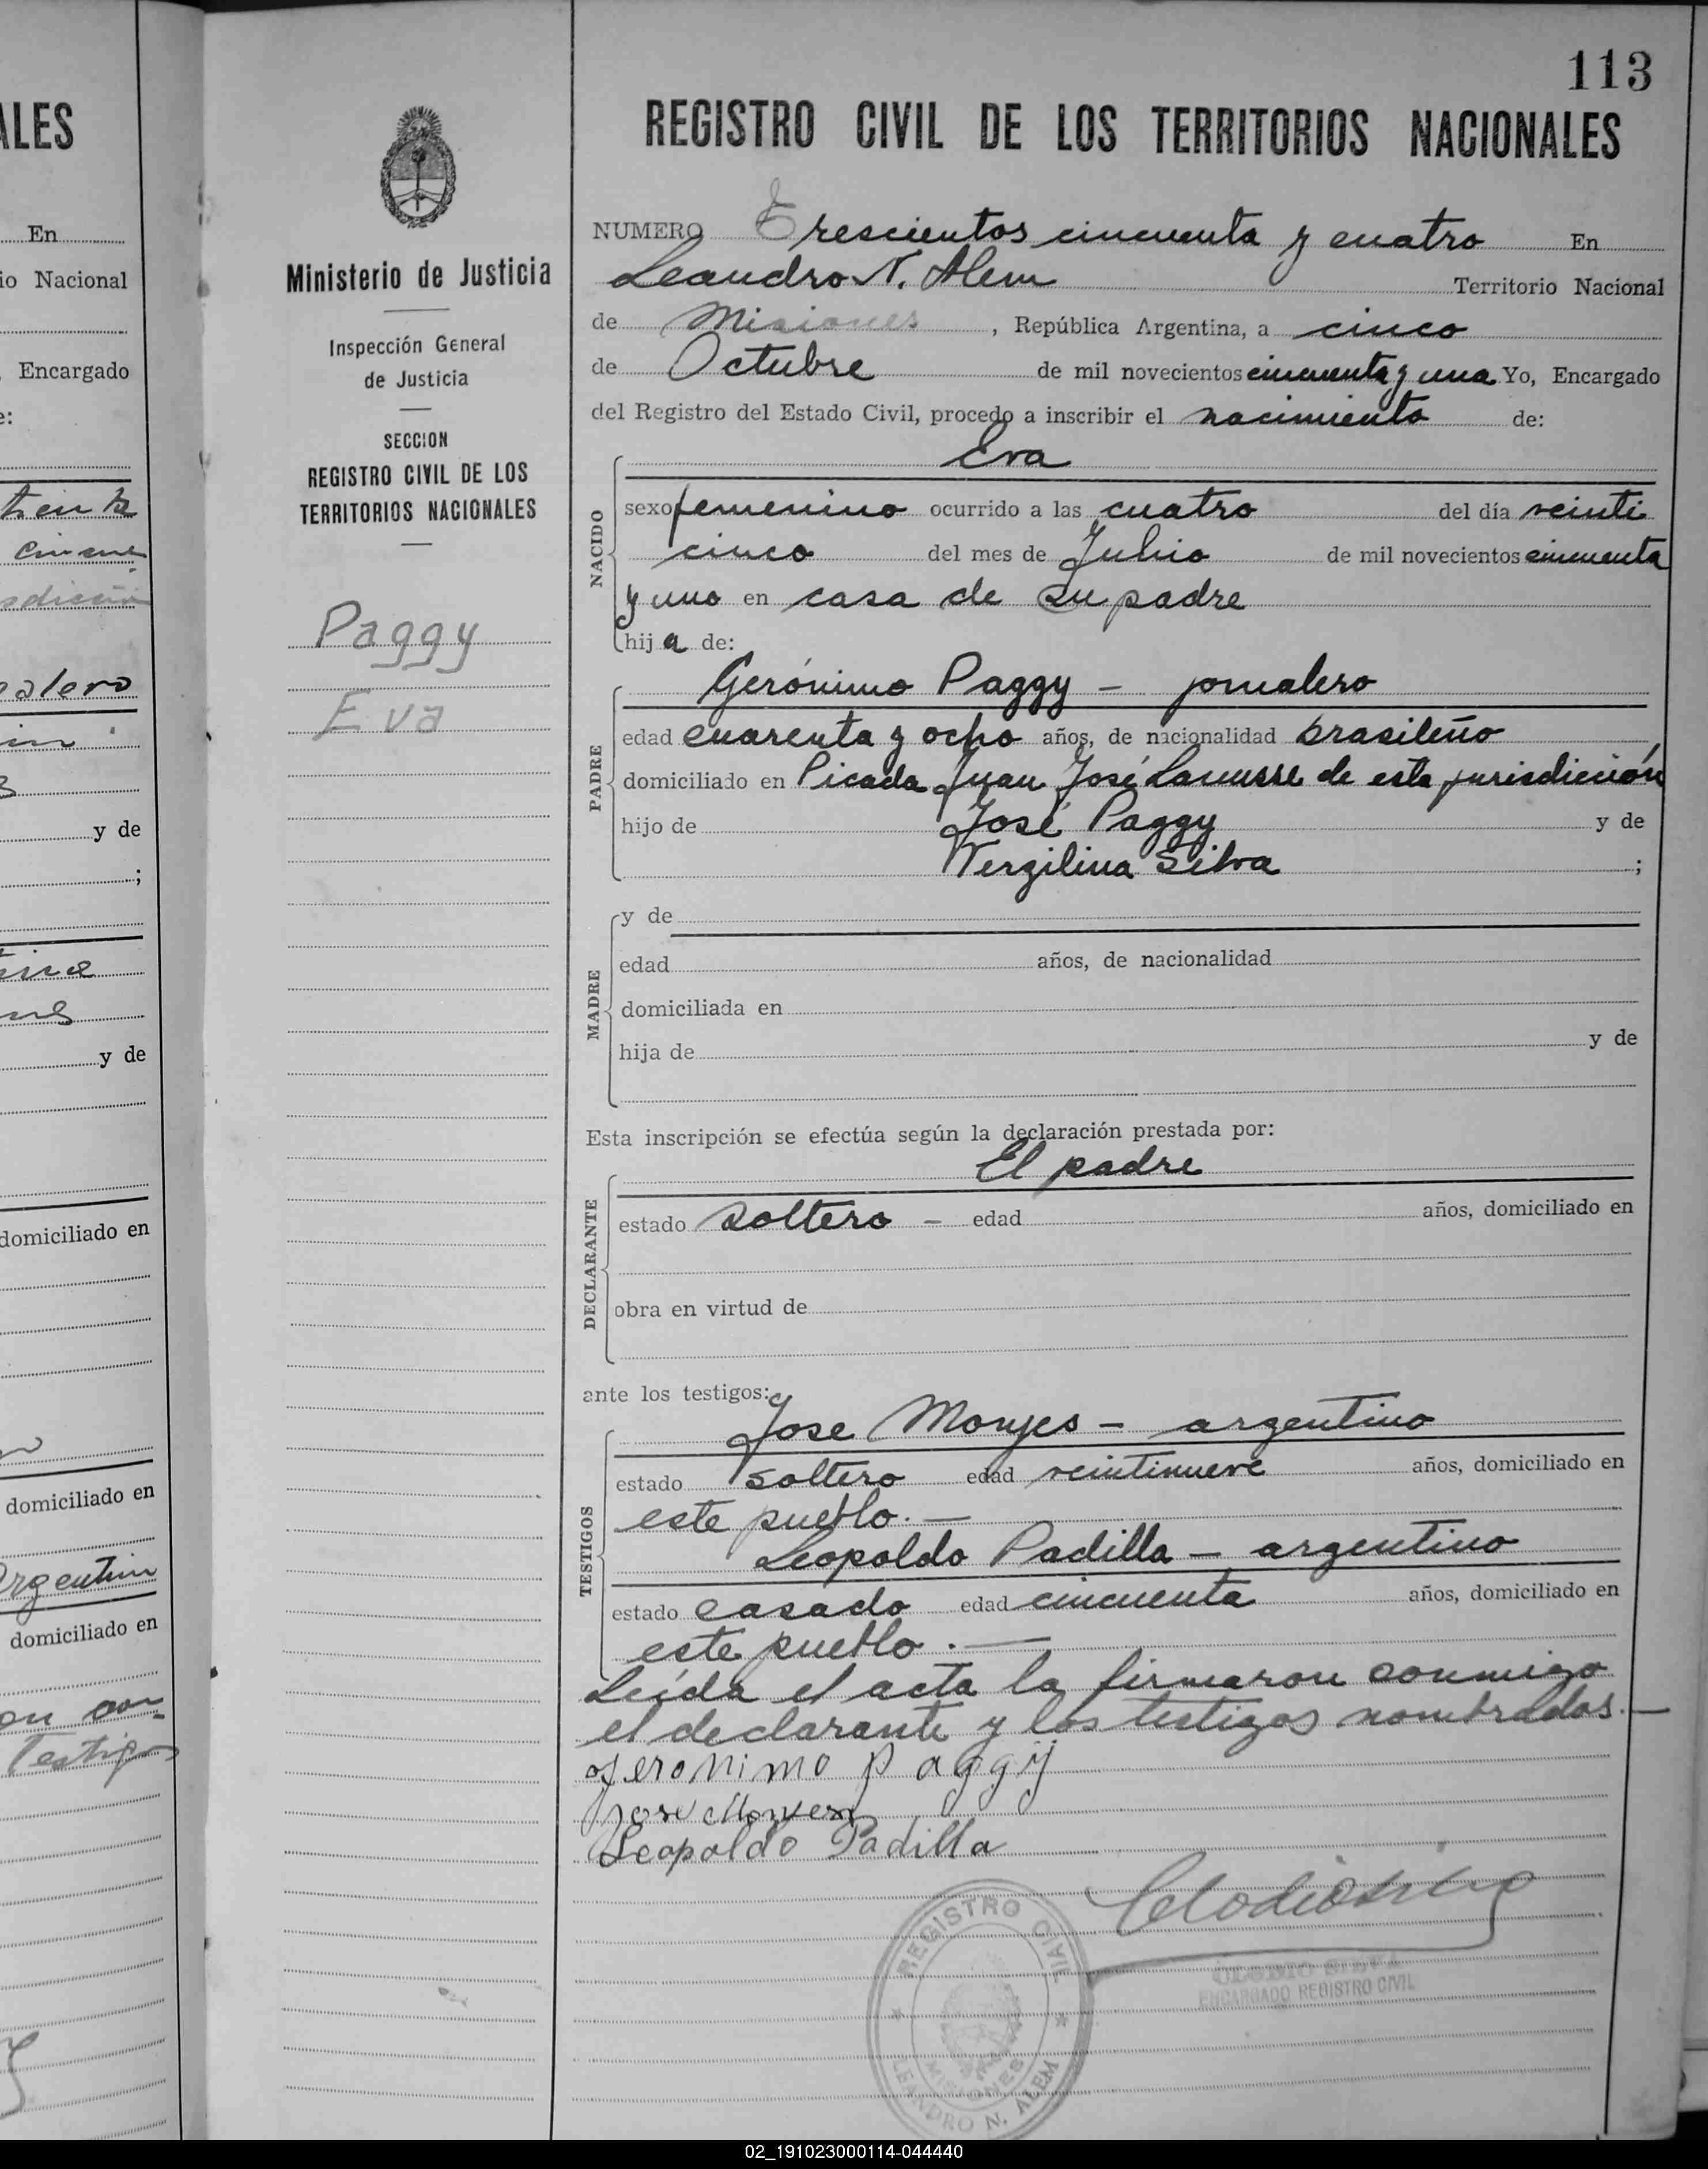 113
REGISTRO CIVIL DE LOS TERRITORIOS NACIONALES
Ministerio de Justicia
Inspección General
de Justicia
SECCION
REGISTRO CIVIL DE LOS
TERRITORIOS NACIONALES
Paggy
Eva
NUMERO Trescientos cincuenta y cuatro En
Leandro N. Alem Territorio Nacional
de Misiones, República Argentina, a cinco
de Octubre de mil novecientos cincuenta y uno Yo, Encargado
del Registro del Estado Civil, procedo a inscribir el nacimiento de:
NACIDO
Eva
sexo femenino ocurrido a las cuatro del día veinti
cinco del mes de Julio de mil novecientos cincuenta
y uno en casa de su padre
hija de:
PADRE
Gerónimo Paggy - jornalero
edad cuarenta y ocho años, de nacionalidad brasileño
domiciliado en Picada Juan José Lanusse de esta jurisdicción
hijo de José Paggy y de
Verzilina Silva ;
MADRE
y de
edad años, de nacionalidad
domiciliada en
hija de y de
Esta inscripción se efectúa según la declaración prestada por:
DECLARANTE
El padre
estado soltero - edad años, domiciliado en
obra en virtud de
ante los testigos:
TESTIGOS
Jose Monjes - argentino
estado soltero edad veintinueve años, domiciliado en
este pueblo. -
Leopoldo Padilla - argentino
estado casado edad cincuenta años, domiciliado en
este pueblo. -
Leída el acta la firmaron conmigo
el declarante y los testigos nombrados. -
Jeronimo Paggy
Jose
Leopoldo Padilla
REGISTRO CIVIL
MISIONES
LEANDRO N. ALEM
CLODIO SILVA
ENCARGADO REGISTRO CIVIL
ALES
En
io Nacional
Encargado
e:
y de
;
y de
domiciliado en
domiciliado en
Argentin
domiciliado en
Testigos
02_191023000114-044440